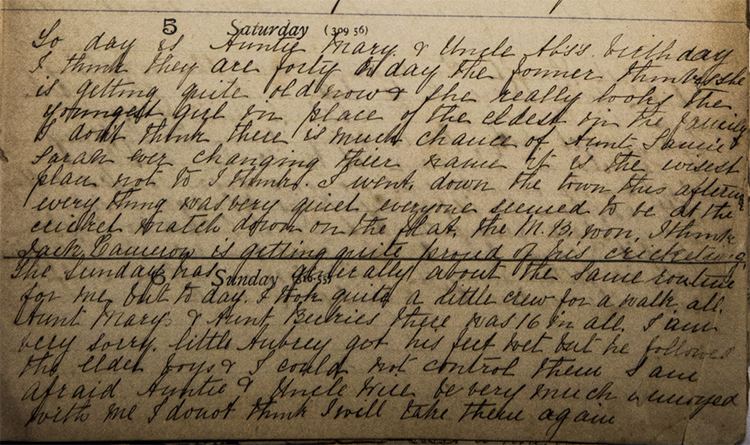 5 Saturday (309 56)
To day is Aunty Mary & Uncle Abs's birthday
I think they are forty to day the former thinks she
is getting quite old now & she really looks the
youngest girl in place of the eldest in the family
I dont think there is much chance of Aunt &
Sarah ever changing their name it is the wisest
plan not to I think. I went down the town this
every thing was very quiet everyone seemed to be at the
cricket match down on the flat, the M.B. won, I think
Jack Cameron is getting quite proud of his cricketing
6 Sunday
The Sunday has generally about the same routine
for me but to day. I took quite a little crew for a walk all
Aunt Mary's & Aunt there was 16 in all. I am
very sorry little Aubrey got his feet wet but he followed
the elder boys & I could not control them I am
afraid Auntie & Uncle will be very much annoyed
with me I donot think I will take them again